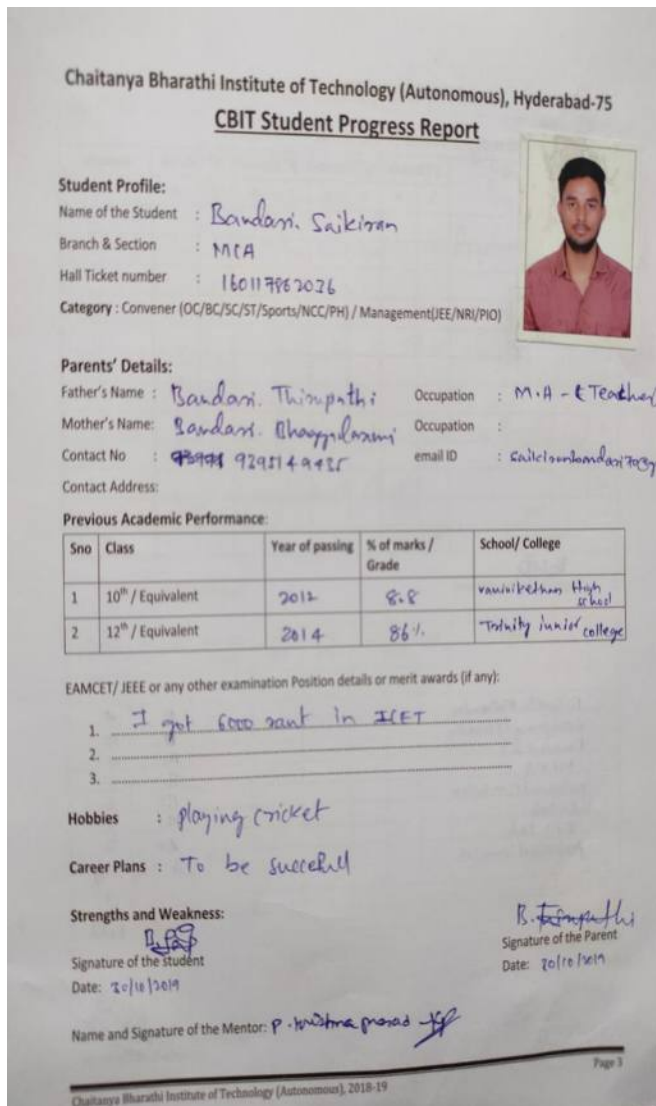 Chaitanya Bharathi Institute of Technology (Autonomous), Hyderabad-75
CBIT Student Progress Report
Student Profile:
Name of the Student : Bandari. Saikiran
Branch & Section : MCA
Hall Ticket number : 160117862036
Category : Convener (OC/BC/SC/ST/Sports/NCC/PH) / Management(JEE/NRI/PIO)
Parents' Details:
Father's Name : Bandari. Thirupathi Occupation : M.A - Teacher
Mother's Name: Bandari. Bhagyalaxmi Occupation :
Contact No : 9295149435 email ID :
Contact Address:
Previous Academic Performance:
Sno Class Year of passing % of marks / Grade School/ College
1 10th / Equivalent 2012 8.8 vaninikethan High school
2 12th / Equivalent 2014 86% Trinity junior college
EAMCET/ JEEE or any other examination Position details or merit awards (if any):
1. I got 6000 rank in ICET
2.
3.
Hobbies : playing cricket
Career Plans : To be
Strengths and Weakness:
Signature of the student
Date: 30/10/2019
B. Tirupathi
Signature of the Parent
Date: 30/10/2019
Name and Signature of the Mentor: P. Krishna prasad
Page 3
Chaitanya Bharathi Institute of Technology (Autonomous), 2018-19